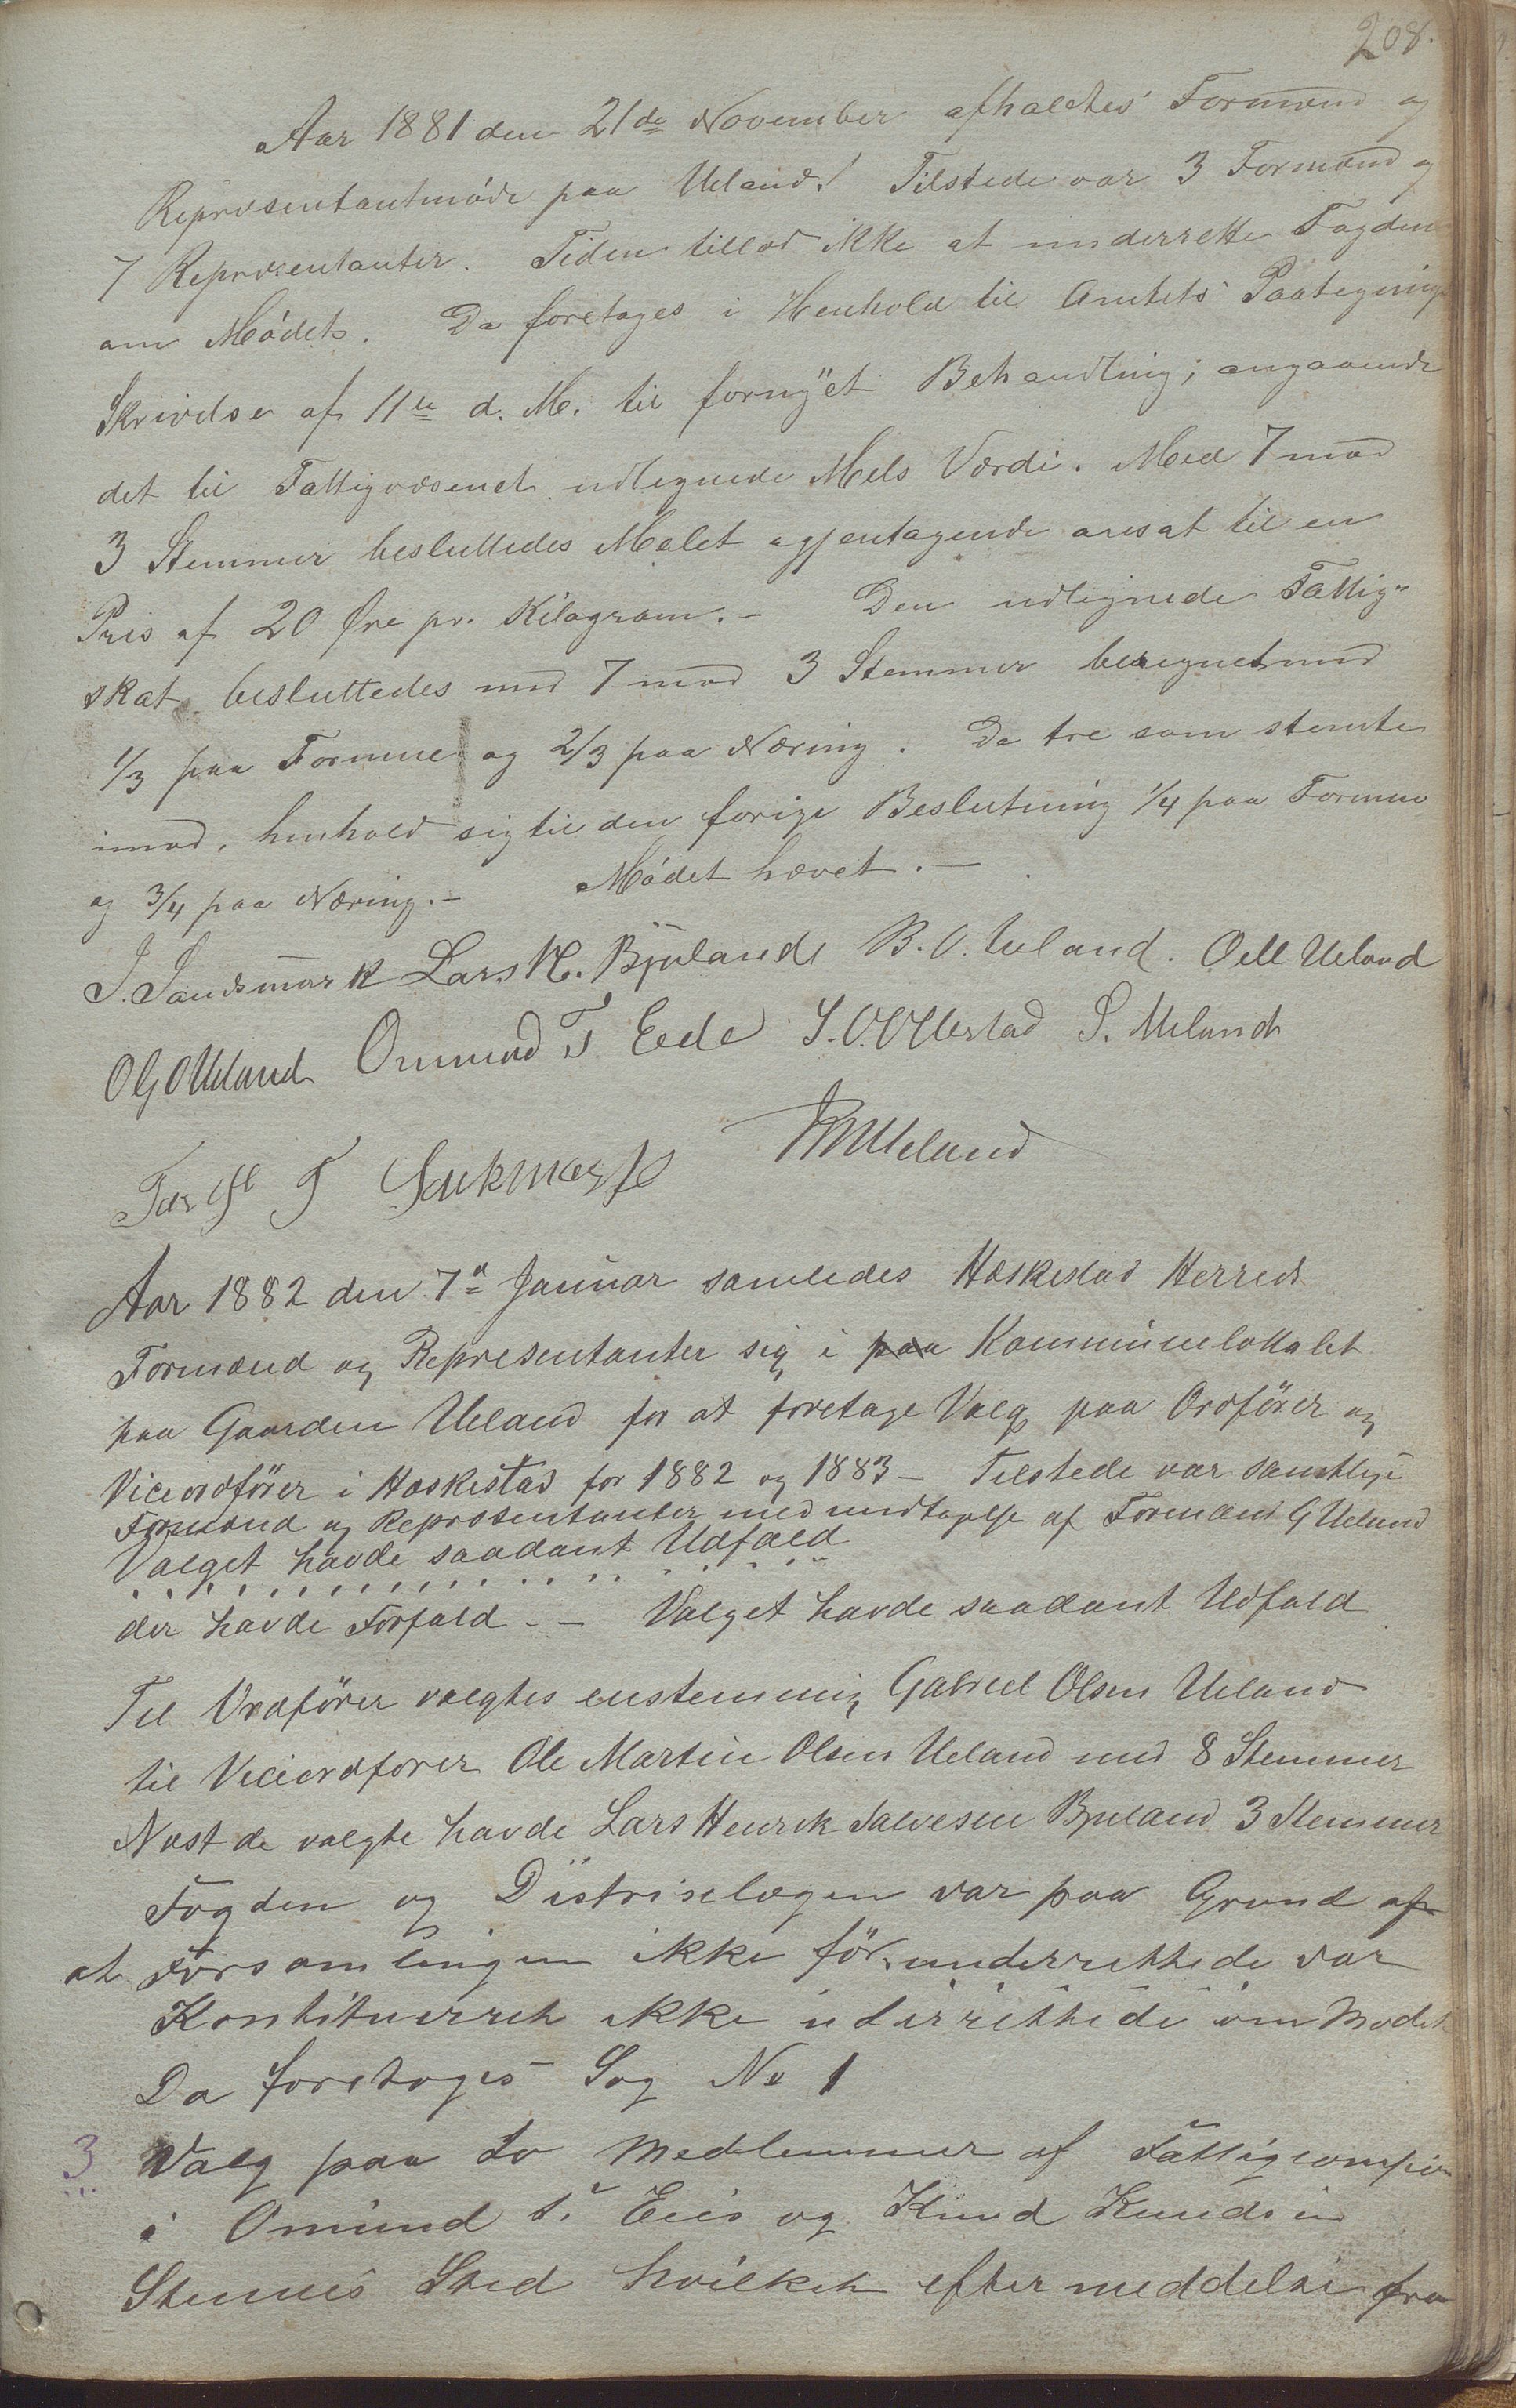 208.
Aar 1881 den 21de November afholdtes Formænd og
Repræsentantmøde paa Ueland. Tilstede var 3 Formænd og
7 Repræsentanter. Tiden tillod ikke at underrette Fogden
om Mødet. Da foretoges i Henhold til Amtets Paategnings
Skrivelse af 11te d. M. til fornÿet Behandling; angaaende
det til Fattigvæsenet udlignede Mels Værdi. Med 7 mod
3 Stemmer besluttedes Melet agjentagende ansat til en
Pris af 20 Øre pr. Kilogram. – Den udlignede Fattig"
skat besluttedes med 7 mod 3 Stemmer beregnet med
1/3 paa Formue og 2/3 paa Næring. De tre som stemte
imod, henhold sig til den forige Beslutning 1/4 paa Formue
og 3/4 paa Næring. – Mødet hævet. –
J. Sandsmark Lars H. Bjuland B. O. Ueland. Oell Ueland
O G O Ueland Ommund T Eede S. O. Ollestad S. Ueland
T Ueland
Aar 1882 den 7de Januar samledes Heskestad Herreds
Formænd og Representanter sig i paa Kommunelokalet
paa Gaarden Ueland for at foretage Valg paa Ordfører og
Viceordfører i Heskestad for 1882 og 1883 – Tilstede var samtlige
Formænd og Repræsentanter med undtagelse af Formand G Ueland
Valget havde saadant Udfald
der havde Forfald. – Valget havde saadant Udfald
Til Ordfører valgtes enstemmig Gabriel Olsen Ueland
til Viceordfører Ole Martin Olsen Ueland med 8 Stemmer
Næst de valgte havde Lars Henrik Salvesen Bjuland 3 Stemmer
Fogden og Distrislægen var paa Grund af
at Forsamlingen ikke før underrettede var
Kontituerret ikke uderrettede om Mødet
Da foretoges Sag No 1
3 Valg paa to Medlemmer af Fattigcompion
i Omund T. Eies og Knud Knudsen
Stennes Sted hvilket efter meddelse fra